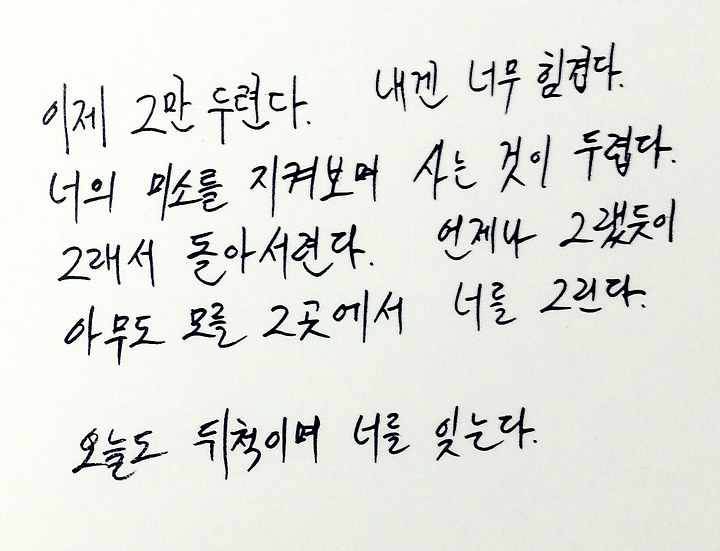 이제 그만 두련다. 내겐 너무 힘겹다.
너의 미소를 지켜보며 사는 것이 두렵다.
그래서 돌아서련다. 언제나 그랬듯이
아무도 모를 그곳에서 너를 그린다.
오늘도 뒤척이며 너를 잊는다.